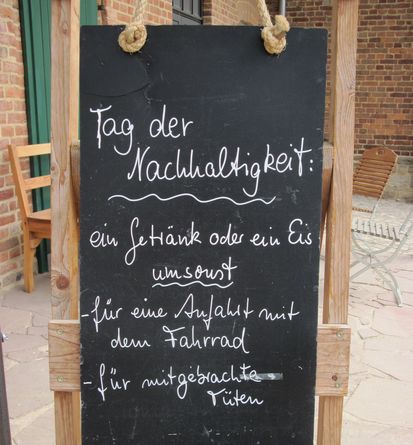 Tag der
Nachhaltigkeit:
ein Getränk oder ein Eis
umsonst
- für eine Anfahrt mit
dem Fahrrad
- für mitgebrachte
Tüten